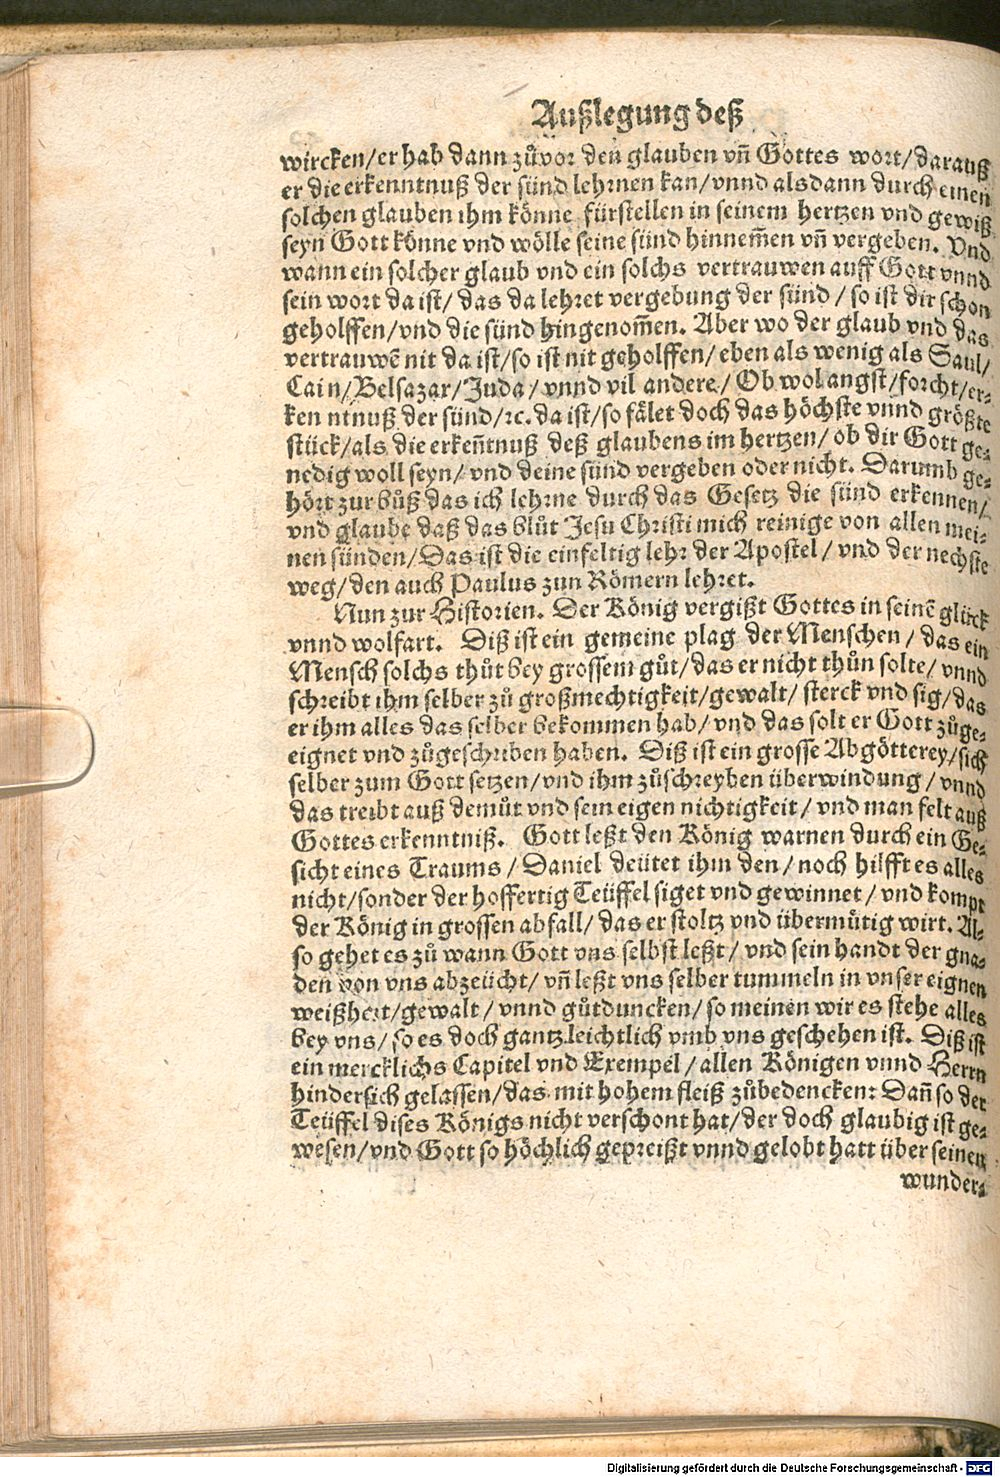 Außlegung deß
wircken/er hab dann zůvor den glauben vn̄ Gottes wort/darauß
er die erkenntnuß der sünd lehrnen kan/vnnd alsdann durch einen
solchen glauben ihm könne fürstellen in seinem hertzen vnd gewiß
seyn Gott könne vnd wölle seine sünd hinnem̄en vn̄ vergeben. Vnd
wann ein solcher glaub vnd ein solchs vertrauwen auff Gott vnnd
sein wort da ist/ das da lehret vergebung der sünd / so ist dir schon
geholffen/vnd die sünd hingenom̄en. Aber wo der glaub vnd das
vertrauwē nit da ist/so ist nit geholffen/eben als wenig als Saul/
Cain/Belsazar/Juda/vnnd vil andere/ Ob wol angst/forcht/er⸗
ken ntnuß der sünd/ꝛc. da ist/so fälet doch das höchste vnnd größte
stück/als die erken̄tnuß deß glaubens im hertzen/ ob dir Gott ge⸗
nedig woll seyn/ vnd deine sünd vergeben oder nicht. Darumb ge⸗
hört zur bůß das ich lehrne durch das Gesetz die sünd erkennen/
vnd glaube daß das blůt Jesu Christi mich reinige von allen mei⸗
nen sünden/Das ist die einfeltig lehr der Apostel / vnd der nechste
weg/den auch Paulus zun Römern lehret.
Nun zur Historien. Der König vergißt Gottes in seinē glück
vnnd wolfart. Diß ist ein gemeine plag der Menschen / das ein
Mensch solchs thůt bey grossem gůt/das er nicht thůn solte/ vnnd
schreibt ihm selber zů großmechtigkeit/gewalt/ sterck vnd sig/das
er ihm alles das selber bekommen hab/ vnd das solt er Gott zůge⸗
eignet vnd zůgeschriben haben. Diß ist ein grosse Abgötterey/sich
selber zum Gott setzen/vnd ihm zůschreyben überwindung / vnnd
das treibt auß demůt vnd sein eigen nichtigkeit/ vnd man felt auß
Gottes erkenntniß. Gott leßt den König warnen durch ein Ge⸗
sicht eines Traums / Daniel deütet ihm den/ noch hilfft es alles
nicht/sonder der hoffertig Teüffel siget vnd gewinnet/ vnd kompt
der König in grossen abfall/ das er stoltz vnd übermůtig wirt. Al⸗
so gehet es zů wann Gott vns selbst leßt/ vnd sein handt der gna⸗
den von vns abzeücht/ vn̄ leßt vns selber tummeln in vnser eignen
weißheit/gewalt / vnnd gůtduncken/ so meinen wir es stehe alles
bey vns/ so es doch gantz leichtlich vmb vns geschehen ist. Diß ist
ein mercklichs Capitel vnd Exempel/ allen Königen vnnd Herrn
hindersich gelassen/das mit hohem fleiß zůbedencken: Dan̄ so der
Teüffel dises Königs nicht verschont hat/der doch glaubig ist ge⸗
wesen/vnd Gott so höchlich gepreißt vnnd gelobt hatt über seinen
wunder⸗
Digitalisierung gefördert durch die Deutsche Forschungsgemeinschaft - DFG